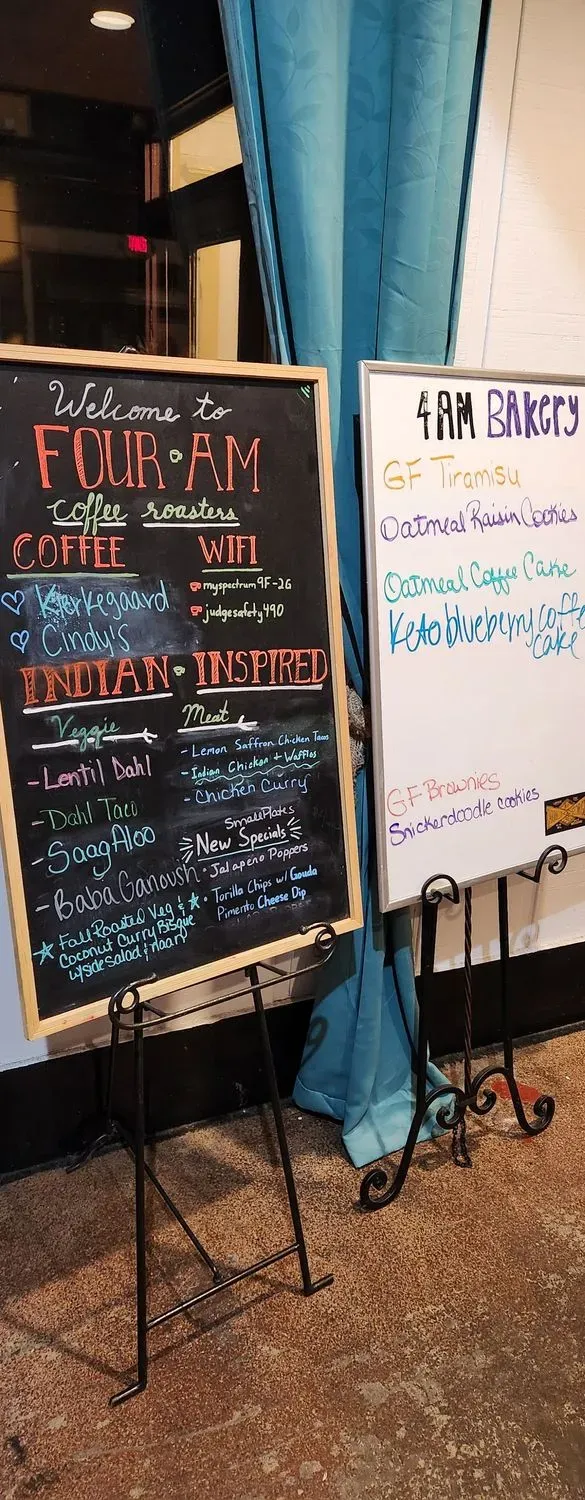 Welcome to
FOUR AM
coffee roasters
COFFEE
Kierkegaard
Cindy's
WIFI
myspectrum9F-2G
judgesafety490
INDIAN INSPIRED
Veggie
-Lentil Dahl
-Dahl Taco
-Saag Aloo
-Baba Ganoush
Fall Roasted Veg &
Coconut Curry Bisque
w/side salad & naan
Meat
- Lemon Saffron Chicken Tacos
- Indian Chicken & Waffles
- Chicken Curry
Small Plates
New Specials
• Jalapeno Poppers
• Torilla Chips w/ Gouda
Pimento Cheese Dip
4AM BAKERY
GF Tiramisu
Oatmeal Raisin Cookies
Oatmeal Coffee Cake
Keto blueberry coffee
cake
GF Brownies
Snickerdoodle cookies